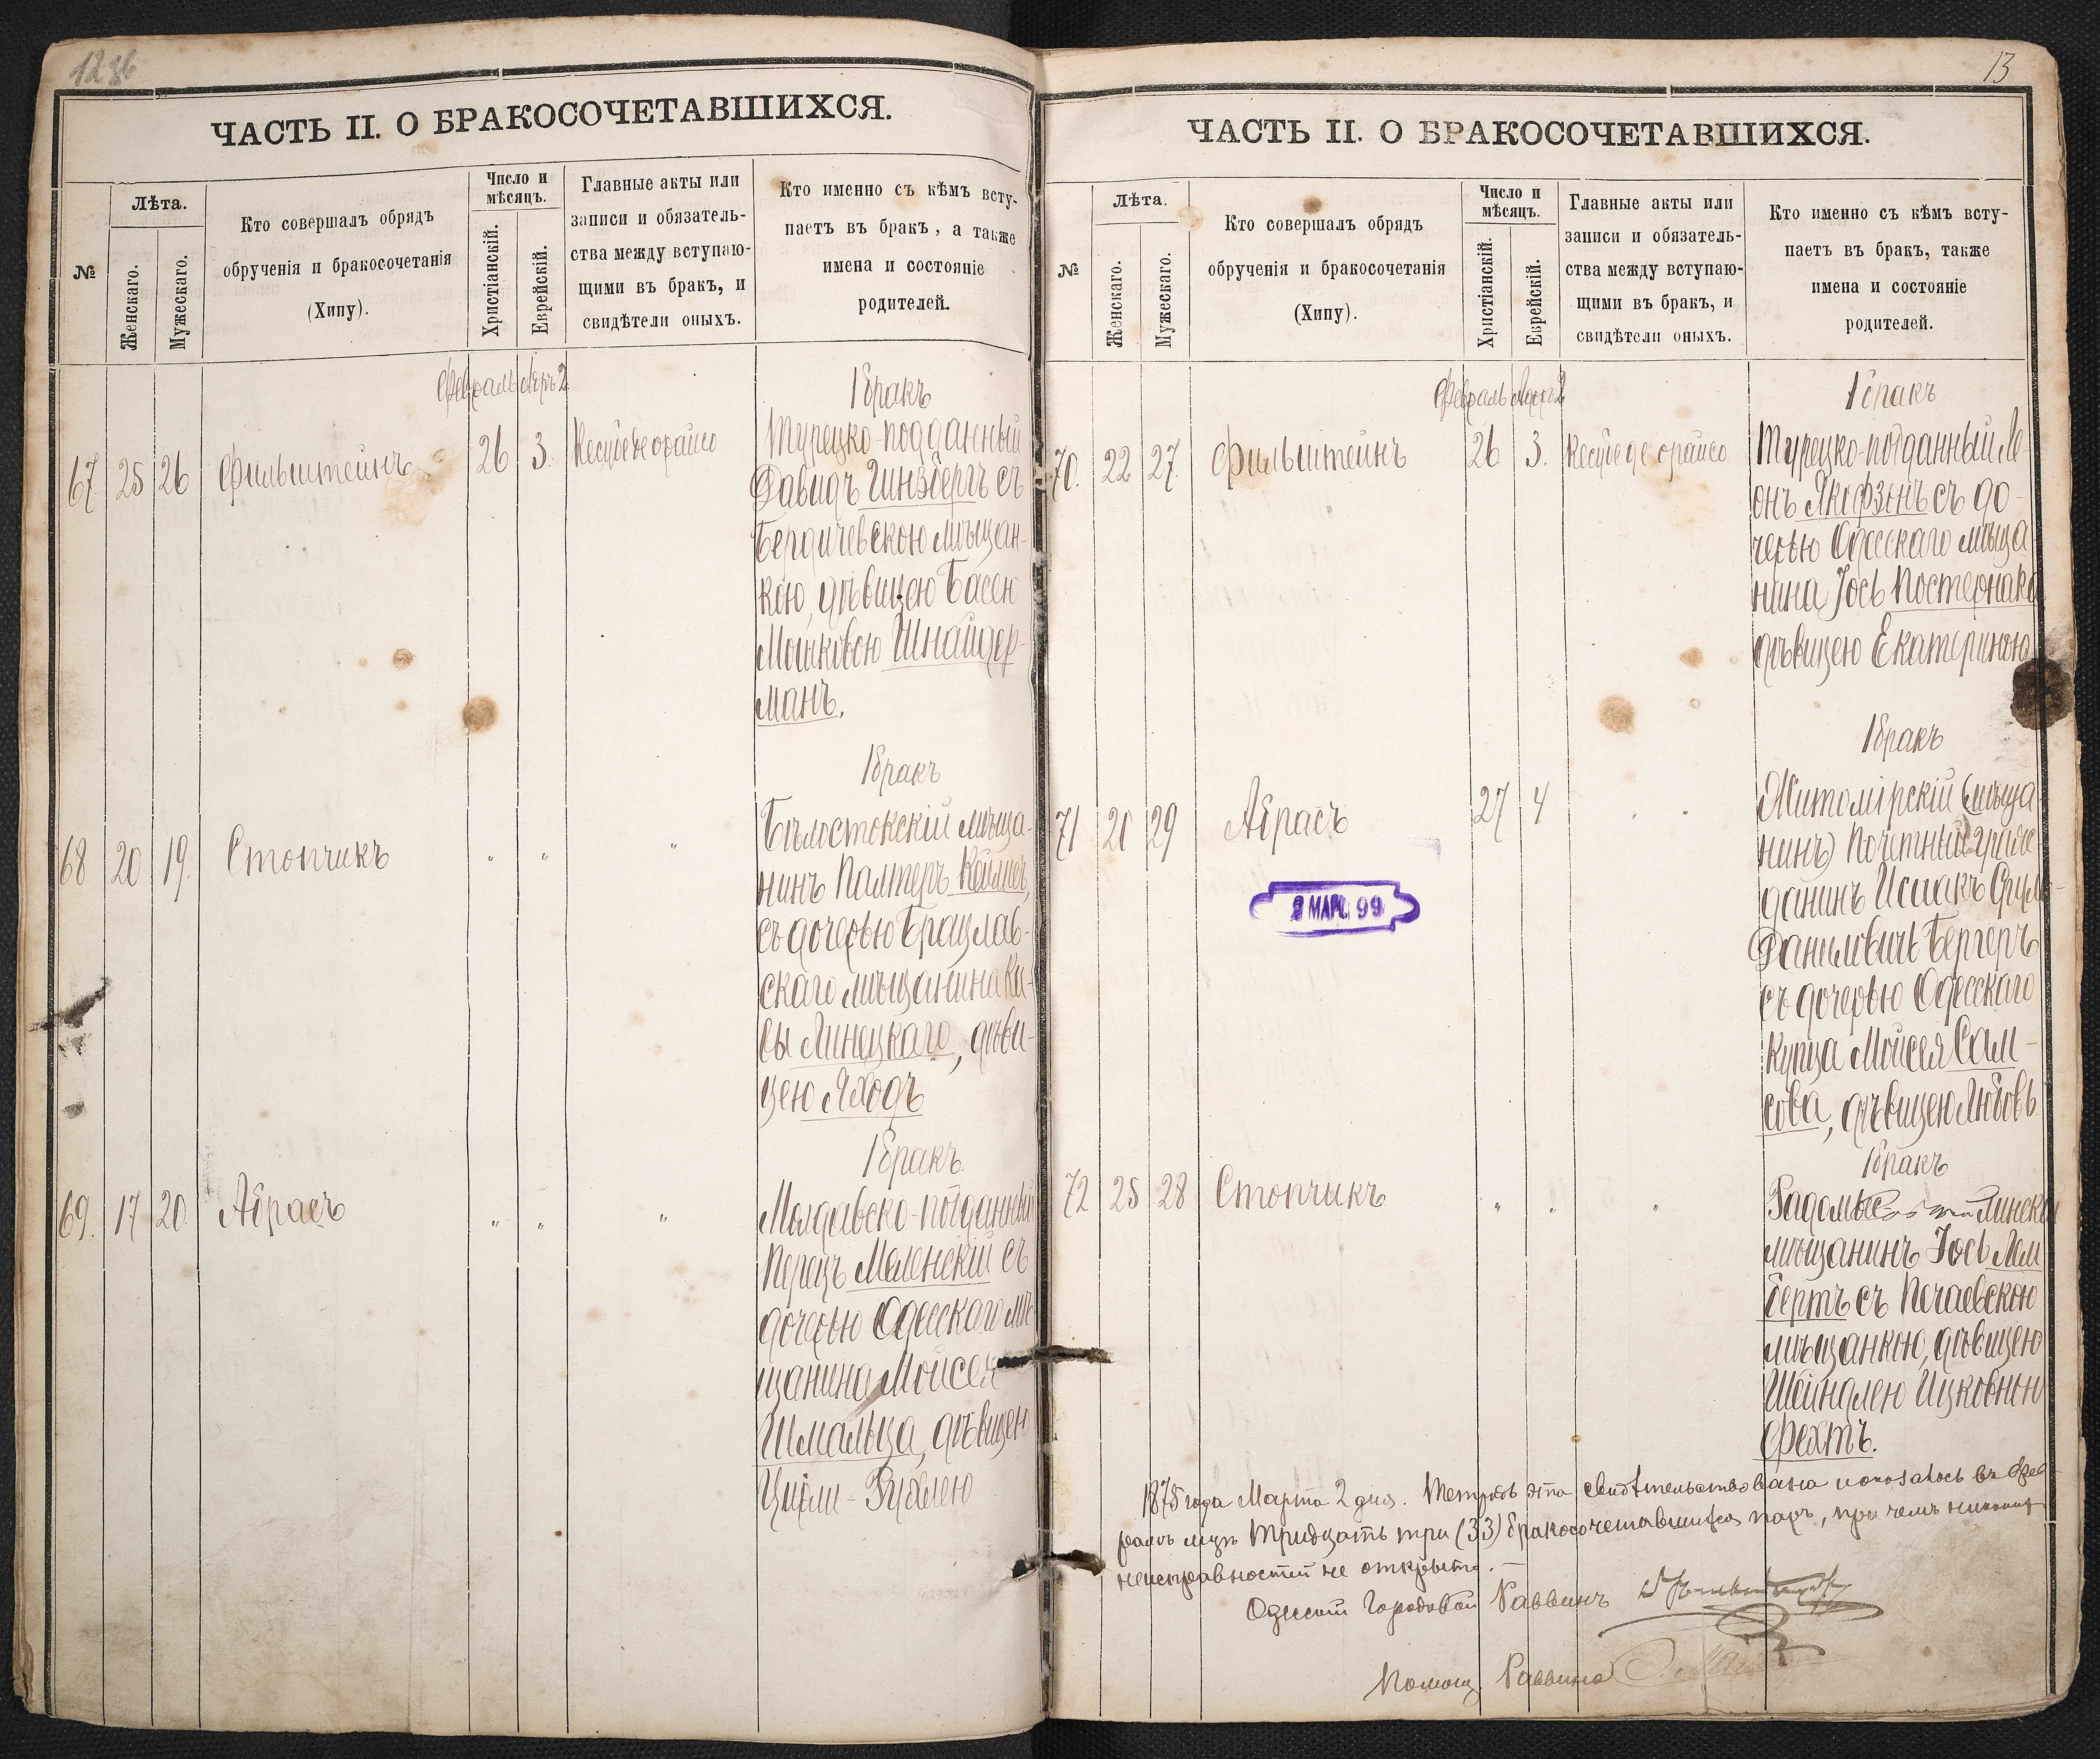 12 36
ЧАСТЬ II. О БРАКОСОЧЕТАВШИХСЯ.
№
Лѣта.
Женскаго.
Мужескаго.
Кто совершалъ обрядъ
обрученія и бракосочетанія
(Хипу).
Число и
мѣсяцъ.
Христіанскій.
Еврейскій.
Главные акты или
записи и обязатель-
ства между вступаю-
щими въ бракъ, и
свидѣтели оныхъ.
Кто именно съ кѣмъ всту-
паетъ въ бракъ, а также
имена и состояніе
родителей.
Февраль Адръ 2
67. 25 26 Фильштейнъ 26 3. Кесубе де орайсо
1 бракъ
Турецко-подданный
Давидъ Гинзбергъ съ
Бердичевскою мѣщан-
кою, дѣвицею Басею
Мошковою Шнайдер-
манъ.
68 20 19. Стопчикъ " " "
1 бракъ
Бѣлостокскій мѣща-
нинъ Палтеръ
съ дочерью Брацлав-
скаго мѣщанина Ки-
сы Линецкаго, дѣви-
цею Яходъ
69. 17 20 Абрасъ " " "
1 бракъ
Молдавско-подданный
Перецъ Меленскій съ
дочерью Одесскаго мѣ-
щанина Мойсея
Шмальца, дѣвицею
Ципли-Рухлею
13
ЧАСТЬ II. О БРАКОСОЧЕТАВШИХСЯ.
№
Лѣта.
Женскаго.
Мужескаго.
Кто совершалъ обрядъ
обрученія и бракосочетанія
(Хипу).
Число и
мѣсяцъ.
Христіанскій.
Еврейскій.
Главные акты или
записи и обязатель-
ства между вступаю-
щими въ бракъ, и
свидѣтели оныхъ.
Кто именно съ кѣмъ всту-
паетъ въ бракъ, также
имена и состояніе
родителей.
Февраль Адръ 2
70. 22 27. Фильштейнъ 26 3. Кесубе де орайсо
1 бракъ
Турецко-подданный Ле-
онъ Якобзонъ съ до-
черью Одесскаго мѣща
нина Іось Постернака
дѣвицею Екатериною
71 20 29 Абрасъ 27 4 " "
1 бракъ
Житомірскій (мѣща-
нинъ) Почетный граж-
данинъ Исаакъ
Даниловичъ Бергеръ
съ дочерью Одесскаго
купца Мойсея Сам-
сова, дѣвицею Любовь
2 МАРТ. 99
72 25 28 Стопчикъ " " "
1 бракъ
мѣщанинъ Іось Лам
бертъ съ Почаевскою
мѣщанкою, дѣвицею
Шейндлею Ицковною
Фехтъ.
1875 года Марта 2 дня. Тетрадь эта свидѣтельствована и оказалось въ Фев-
ралѣ мцѣ тридцать три (33) бракосочетавшихся паръ, при чемъ никакихъ
неисправностей не открыто. —
Одесскій Городовой Раввинъ
Помощ. Раввина